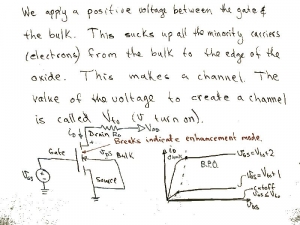 We apply a positive voltage between the gate &
the bulk. This sucks up all the minority carriers
(electrons) from the bulk to the edge of the
oxide. This makes a channel. The
value of the voltage to create a channel
is called Vto (V turn on).
iD
Drain RD
VDD
Breaks indicate enhancement mode.
Gate
VDS
Bulk
VGS
Source
iD
VGS=Vto+2
VGS=Vto+1
cutoff
VGS≤Vto
VDS